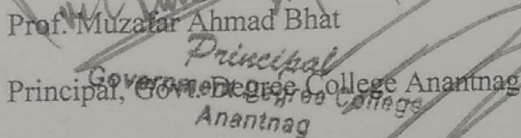 Prof. Muzafar Ahmad Bhat
Principal
Principal, Govt. Degree College Anantnag
Government Degree College
Anantnag